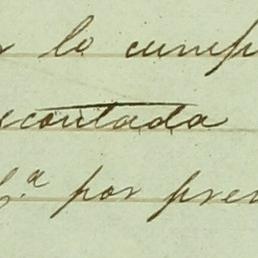 lo cump
scontada
f.ª por pre